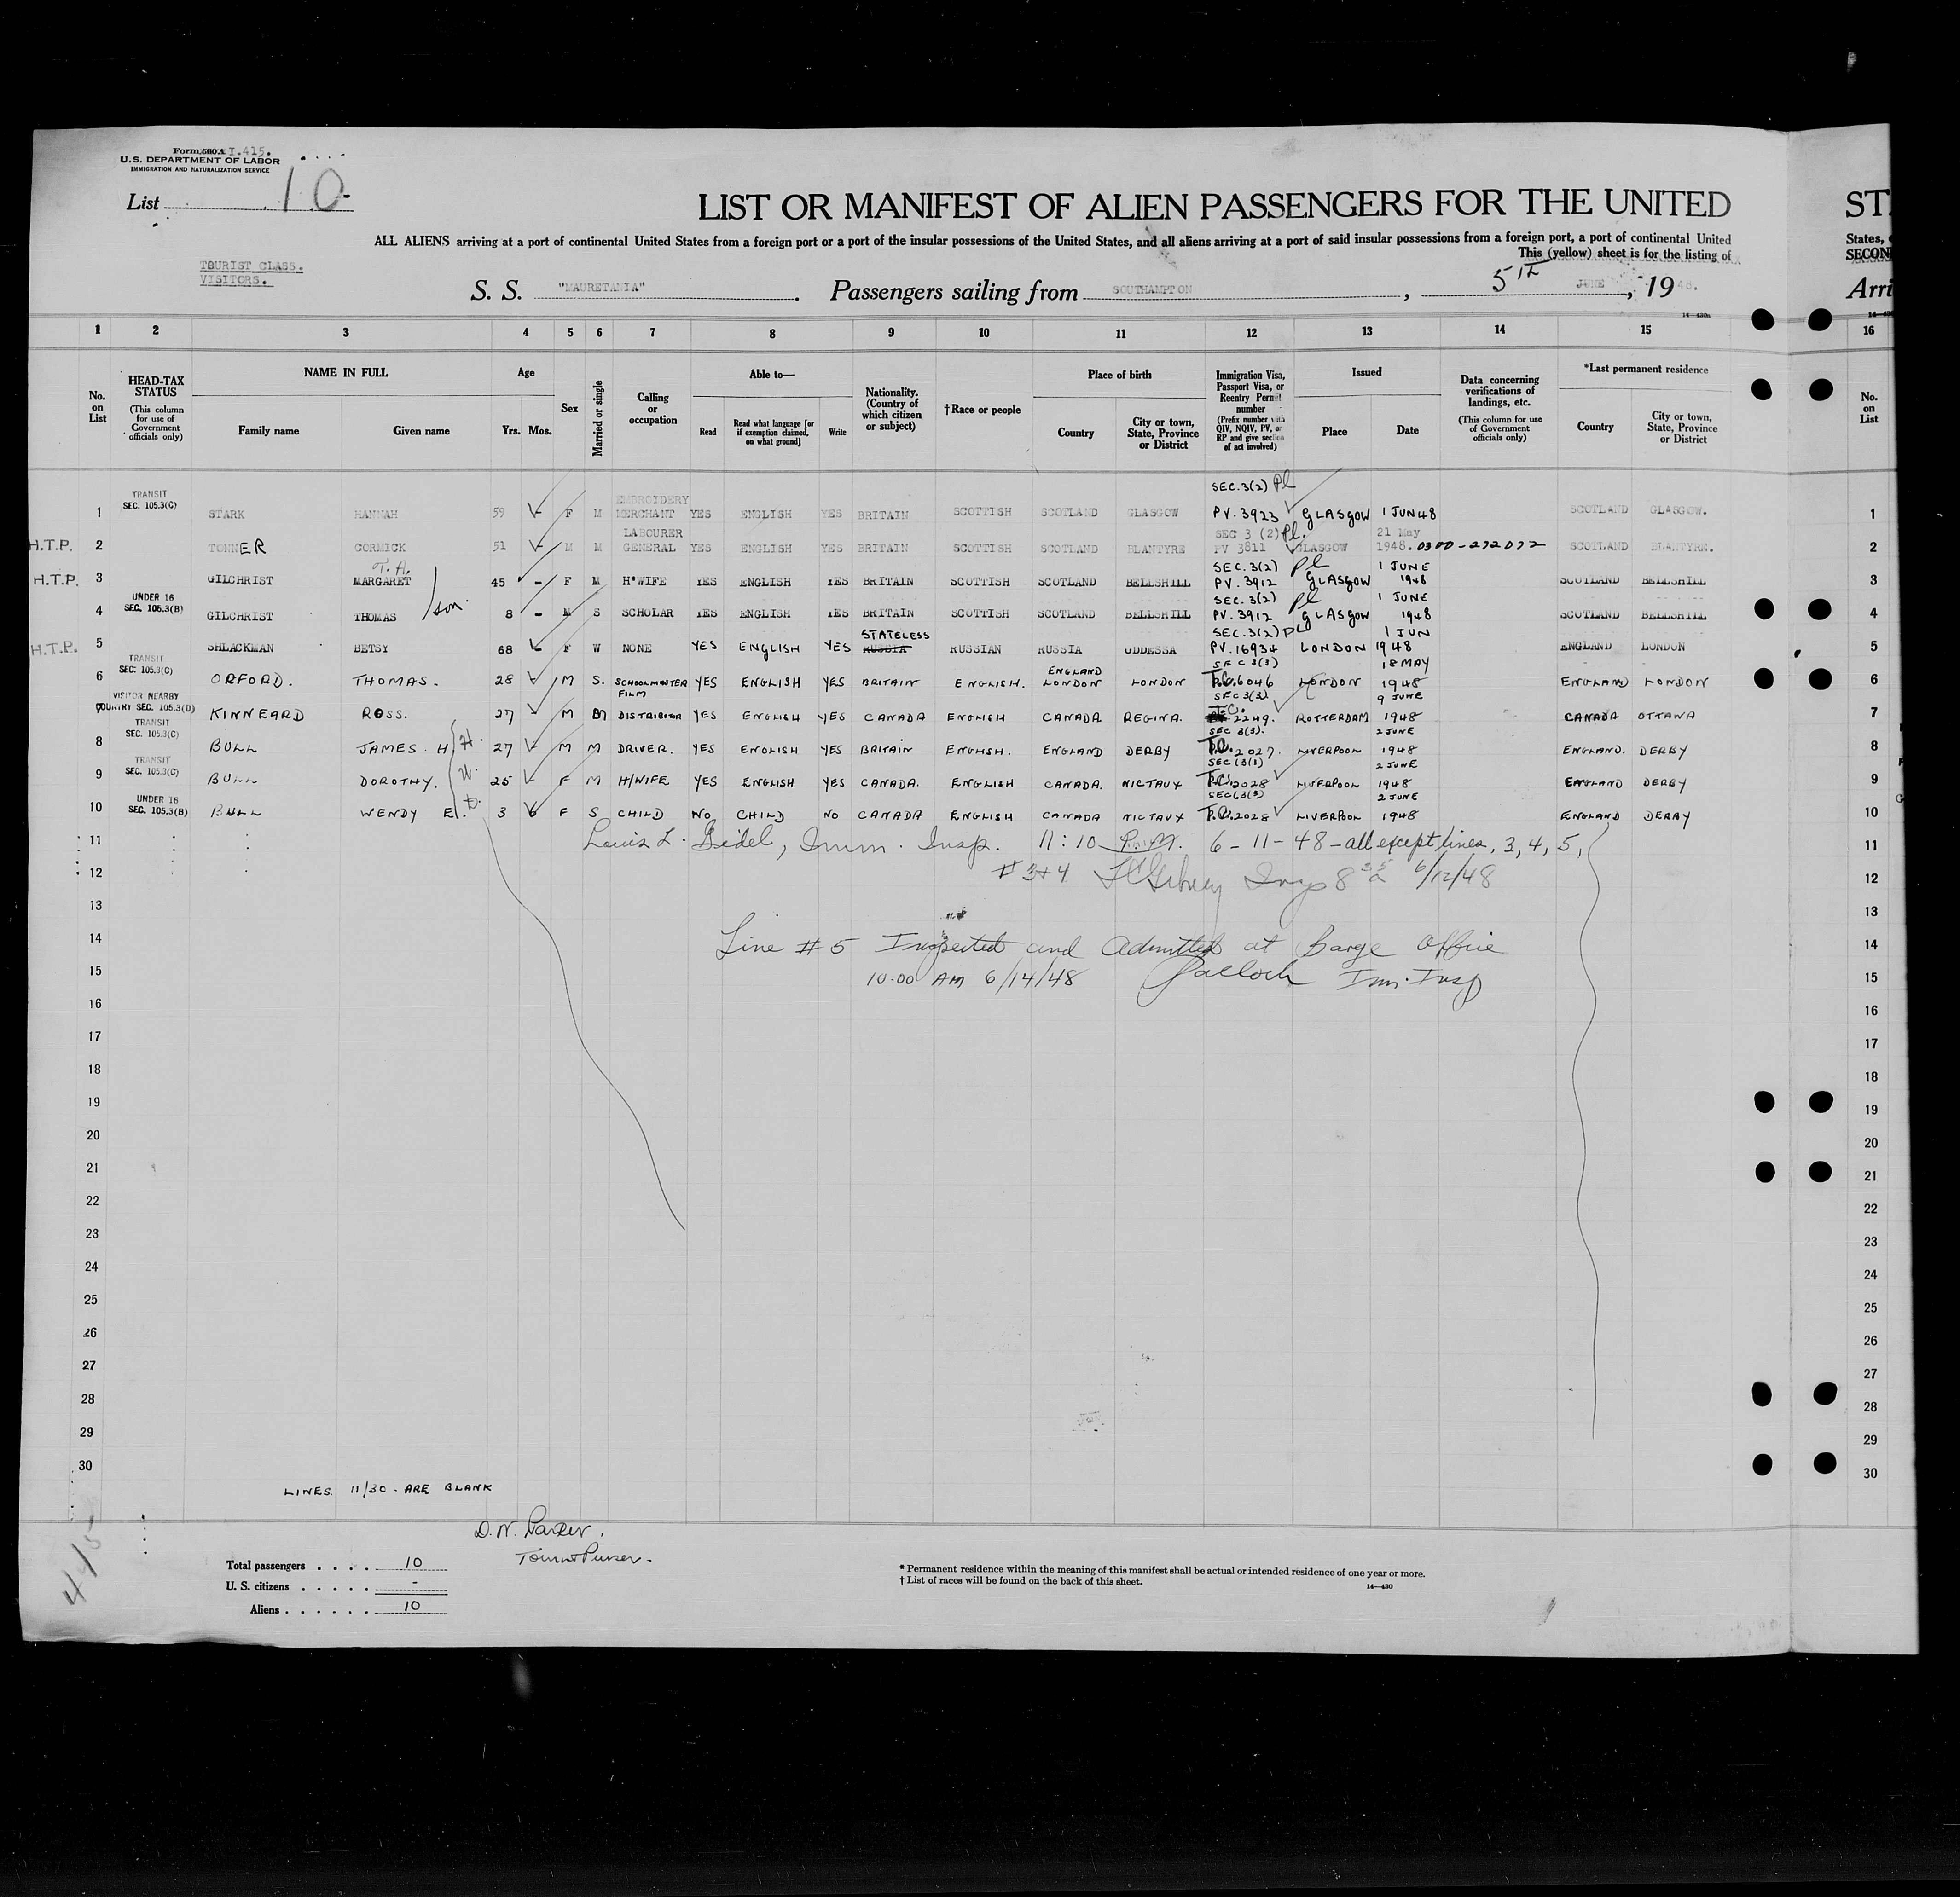 Form 500 A I.415.
U.S. DEPARTMENT OF LABOR
IMMIGRATION AND NATURALIZATION SERVICE
List 10
LIST OR MANIFEST OF ALIEN PASSENGERS FOR THE UNITED
ST
ALL ALIENS arriving at a port of continental United States from a foreign port or a port of the insular possessions of the United States, and all aliens arriving at a port of said insular possessions from a foreign port, a port of continental United
States,
This (yellow) sheet is for the listing of
SECON
TOURIST CLASS.
VISITORS.
S. S. "MAURETANIA". Passengers sailing from SOUTHAMPTON, 5TH JUNE, 1948.
Arri
1 2 3 4 5 6 7 8 9 10 11 12 13 14 15 16
No. on List
HEAD-TAX STATUS (This column for use of Government officials only)
NAME IN FULL Family name Given name
Age Yrs. Mos.
Sex
Married or single
Calling or occupation
Able to— Read Read what language [or if exemption claimed, on what ground] Write
Nationality. (Country of which citizen or subject)
†Race or people
Place of birth Country City or town, State, Province or District
Immigration Visa, Passport Visa, or Reentry Permit number (Prefix number with QIV, NQIV, PV, or RP and give section of act involved)
Issued Place Date
Data concerning verifications of landings, etc. (This column for use of Government officials only)
*Last permanent residence Country City or town, State, Province or District
No. on List
1 TRANSIT SEC. 105.3(C) STARK HANNAH 59 - F M EMBROIDERY MERCHANT YES ENGLISH YES BRITAIN SCOTTISH SCOTLAND GLASGOW SEC.3(2) PV.3923 GLASGOW 1 JUN 48 SCOTLAND GLASGOW. 1
H.T.P. 2 TONNER CORMICK 51 - M M LABOURER GENERAL YES ENGLISH YES BRITAIN SCOTTISH SCOTLAND BLANTYRE SEC 3 (2) PV 3811 GLASGOW 21 May 1948. 0300-272072 SCOTLAND BLANTYRE. 2
H.T.P. 3 GILCHRIST T.H. MARGARET 45 - F M H'WIFE YES ENGLISH YES BRITAIN SCOTTISH SCOTLAND BELLSHILL SEC.3(2) PV.3912 GLASGOW 1 JUNE 1948 SCOTLAND BELLSHILL 3
4 UNDER 16 SEC. 105.3(B) GILCHRIST THOMAS son 8 - M S SCHOLAR YES ENGLISH YES BRITAIN SCOTTISH SCOTLAND BELLSHILL SEC.3(2) PV.3912 GLASGOW 1 JUNE 1948 SCOTLAND BELLSHILL 4
H.T.P. 5 SHLACKMAN BETSY 68 - F W NONE YES ENGLISH YES STATELESS RUSSIA RUSSIAN RUSSIA ODDESSA SEC.3(2) PV.16934 LONDON 1 JUN 1948 ENGLAND LONDON 5
6 TRANSIT SEC. 105.3(C) ORFORD. THOMAS. 28 M S. SCHOOLMASTER YES ENGLISH YES BRITAIN ENGLISH. ENGLAND LONDON LONDON SEC 3(3) T.C. 6046 LONDON 18 MAY 1948 ENGLAND LONDON 6
7 VISITOR NEARBY COUNTRY SEC. 105.3(D) KINNEARD ROSS. 27 - M M FILM DISTRIBITOR YES ENGLISH YES CANADA ENGLISH CANADA REGINA. SEC 3(3) T.C. 2249. ROTTERDAM 9 JUNE 1948 CANADA OTTAWA 7
8 TRANSIT SEC. 105.3(C) BULL JAMES. H H. 27 M M DRIVER. YES ENGLISH YES BRITAIN ENGLISH. ENGLAND DERBY SEC 3(3). T.C. 2027. LIVERPOOL 2 JUNE 1948 ENGLAND. DERBY 8
9 TRANSIT SEC. 105.3(C) BULL DOROTHY. W. 25 F M H/WIFE YES ENGLISH YES CANADA. ENGLISH CANADA. NICTAUX SEC (3(3) T.C. 2028 LIVERPOOL 2 JUNE 1948 ENGLAND DERBY 9
10 UNDER 16 SEC. 105.3(B) BULL WENDY E. D. 3 6 F S CHILD NO CHILD NO CANADA ENGLISH CANADA NICTAUX SEC (3(3) T.C. 2028 LIVERPOOL 2 JUNE 1948 ENGLAND DERBY 10
11 Louis L. Gidel, Imm. Insp. 11:10 P.M. 6-11-48 - all except lines, 3, 4, 5, 11
12 #3+4 Insp 6/12/48 12
13 13
14 Line #5 Inspected and Admitted at Barge Office 14
15 10.00 AM 6/14/48 Imm. Insp 15
16 16
17 17
18 18
19 19
20 20
21 21
22 22
23 23
24 24
25 25
26 26
27 27
28 28
29 29
30 30
LINES 11/30 - ARE BLANK
D.N. Parker.
Tourist Purser.
Total passengers . . . . 10
U. S. citizens . . . . . -
Aliens . . . . . . 10
* Permanent residence within the meaning of this manifest shall be actual or intended residence of one year or more.
† List of races will be found on the back of this sheet.
14—430